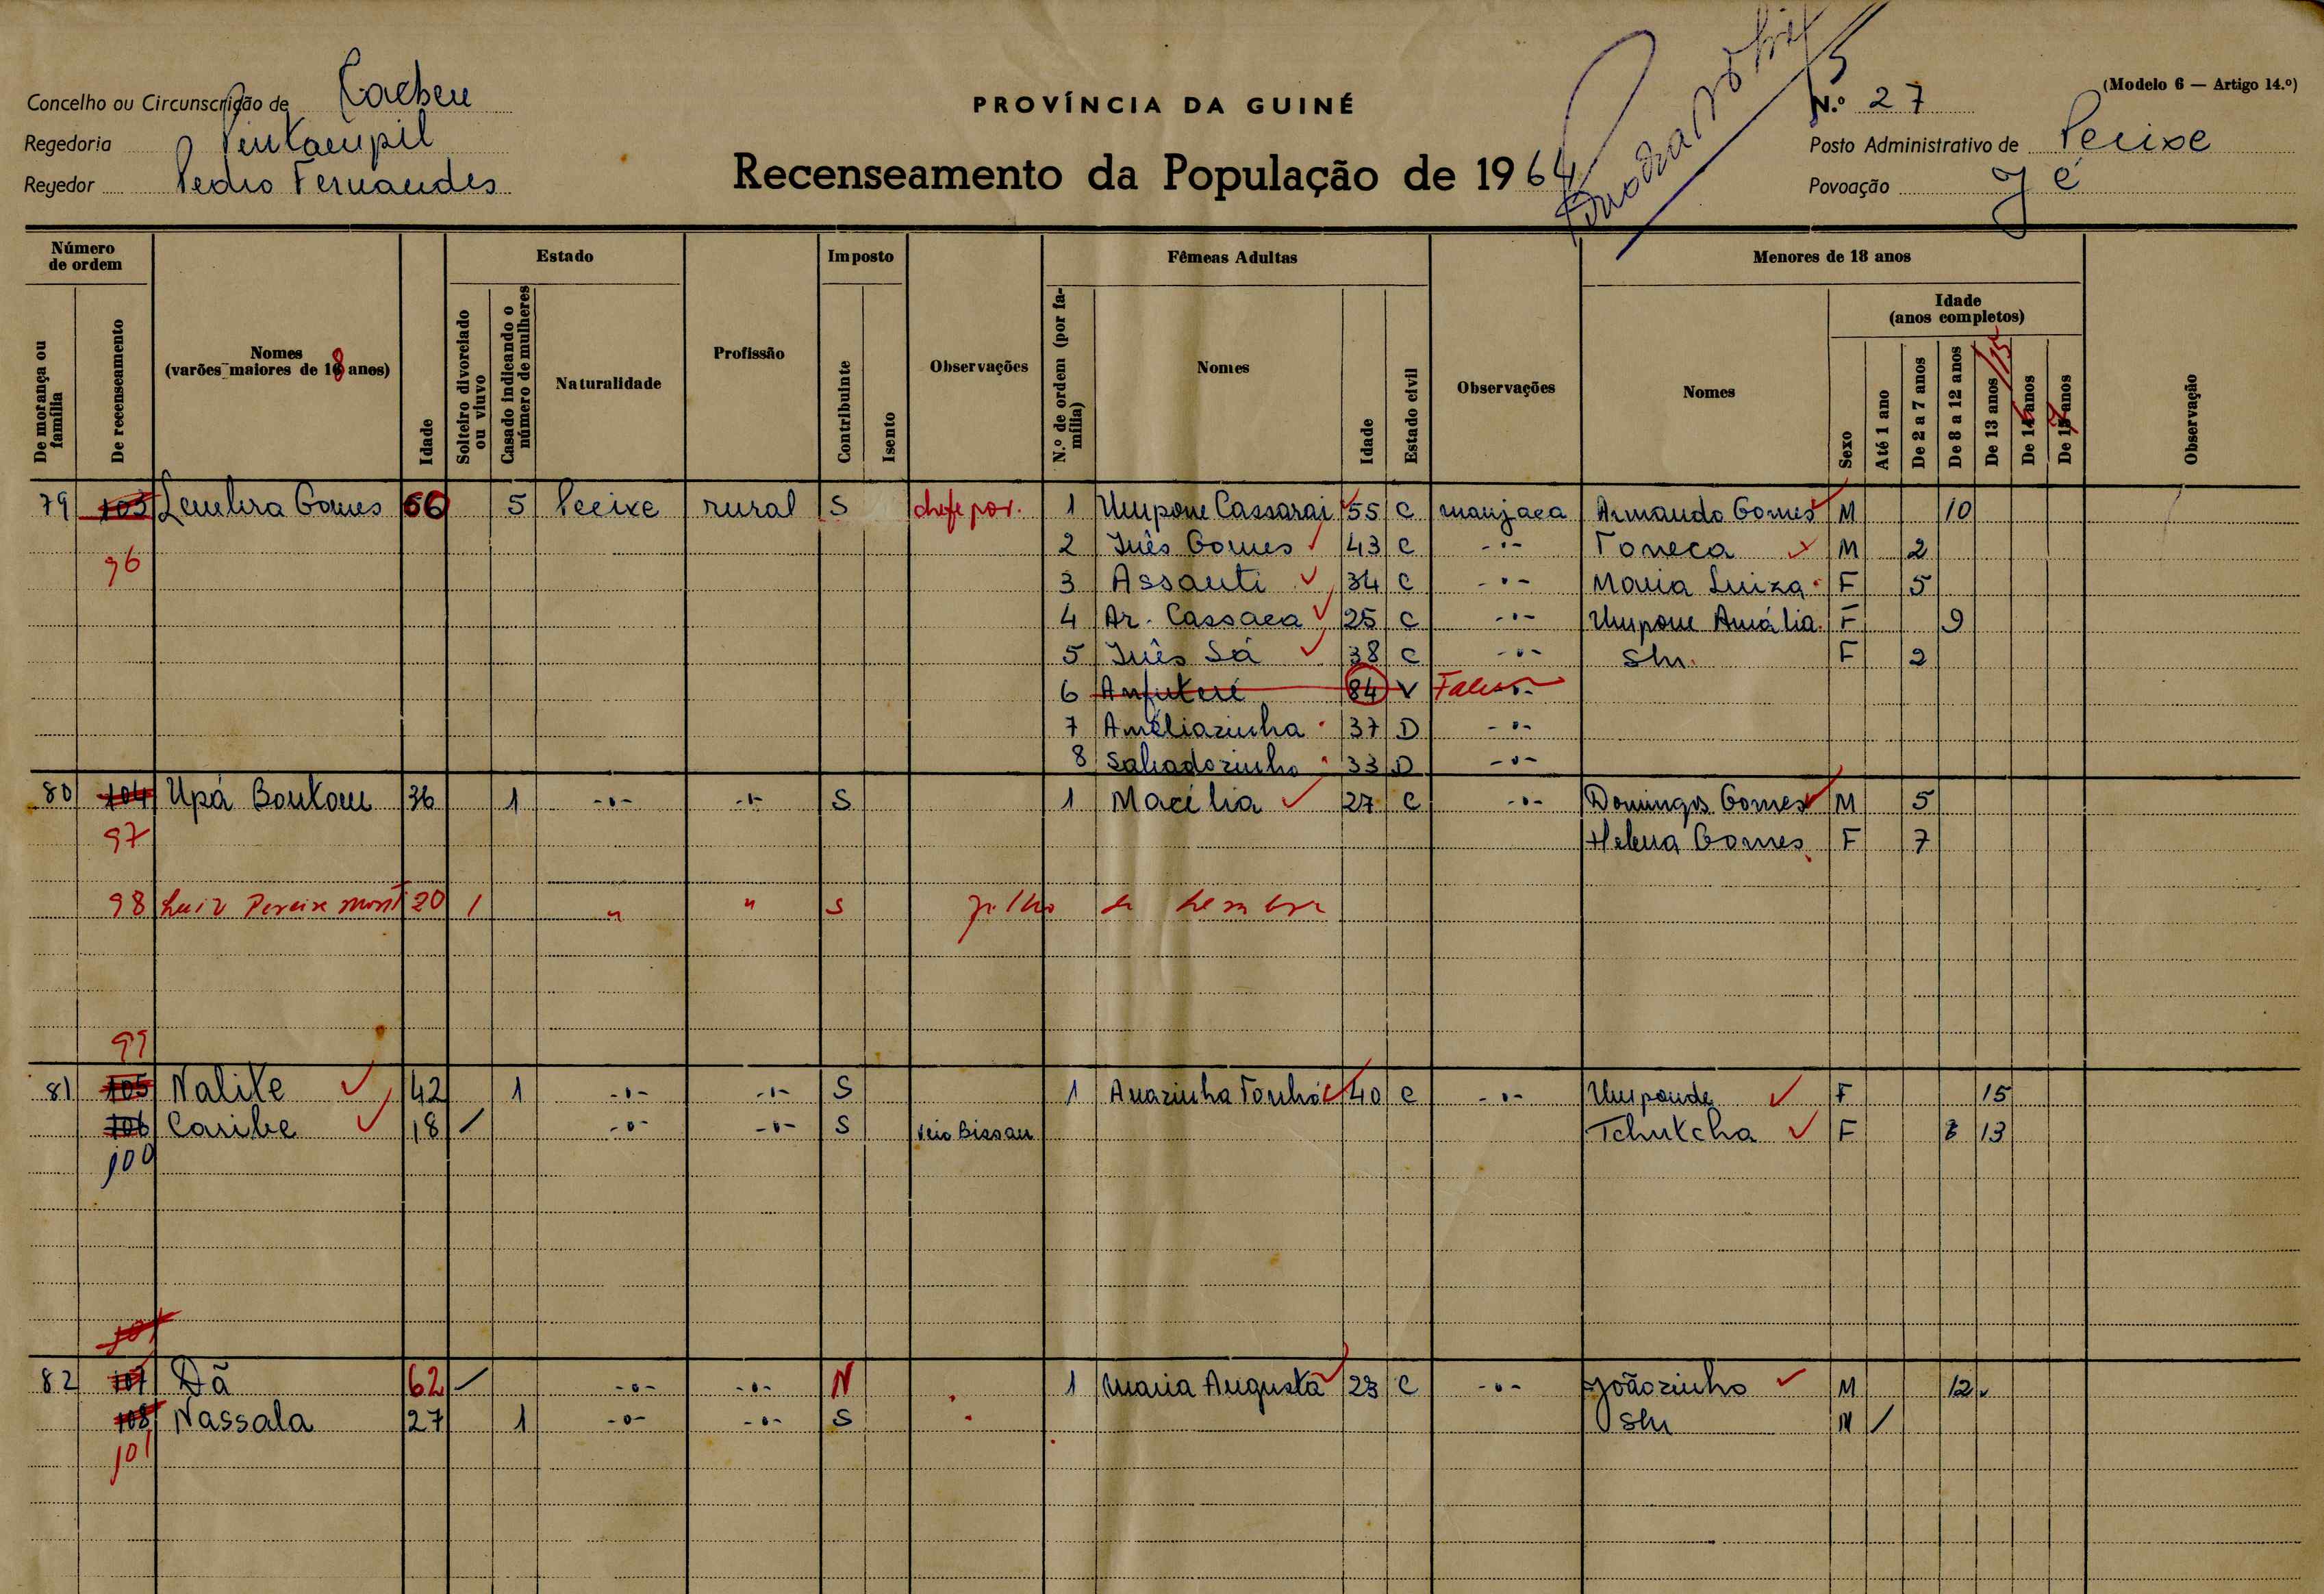 Concelho ou Circunscrição de Cacheu
PROVÍNCIA DA GUINÉ
N.º 27
(Modelo 6 — Artigo 14.º)
Regedoria
Posto Administrativo de Pecixe
Regedor Pedro Fernandes
Recenseamento da População de 1964
Povoação Jé
Número de ordem
Estado
Imposto
Fêmeas Adultas
Menores de 18 anos
Idade
(anos completos)
De morança ou família
De recenseamento
Nomes
(varões maiores de 18 anos)
Idade
Solteiro divorciado ou viuvo
Casado indicando o número de mulheres
Naturalidade
Profissão
Contribuinte
Isento
Observações
N.º de ordem (por família)
Nomes
Idade
Estado civil
Observações
Nomes
Sexo
Até 1 ano
De 2 a 7 anos
De 8 a 12 anos
De 13 anos /15
De 16 anos
De 17 anos
Observação
79 103 Lembra Gomes 66 5 Pecixe rural S chefe pov. 1 Umpone Cassarai 55 C manjaca Armando Gomes M 10
2 Inês Gomes 43 C -"- Toneca M 2
96 3 Assanti 34 C -"- Maria Luiza F 5
4 Ar. Cassaca 25 C -"- Umpone Amália F 9
5 Inês Sá 38 C -"- F 2
6 84 V -"-
7 Améliazinha 37 D -"-
8 33 D -"-
80 104 Upá Bontom 36 1 -"- -"- S 1 27 C -"- Domingos Gomes M 5
97 Helena Gomes F 7
98 Luiz 20 / " " S filho de Lembra
99
81 105 Nalite 42 1 -"- -"- S 1 Anazinha Tonhó 40 C -"- Umponde F 15
106 Caribe 18 / -"- -"- S Veio Bissau Tchutcha F 13
100
101
82 107 Dã 62 / -"- -"- N 1 Maria Augusta 23 C -"- Joãozinho M 12
108 Nassala 27 1 -"- -"- S M /
101